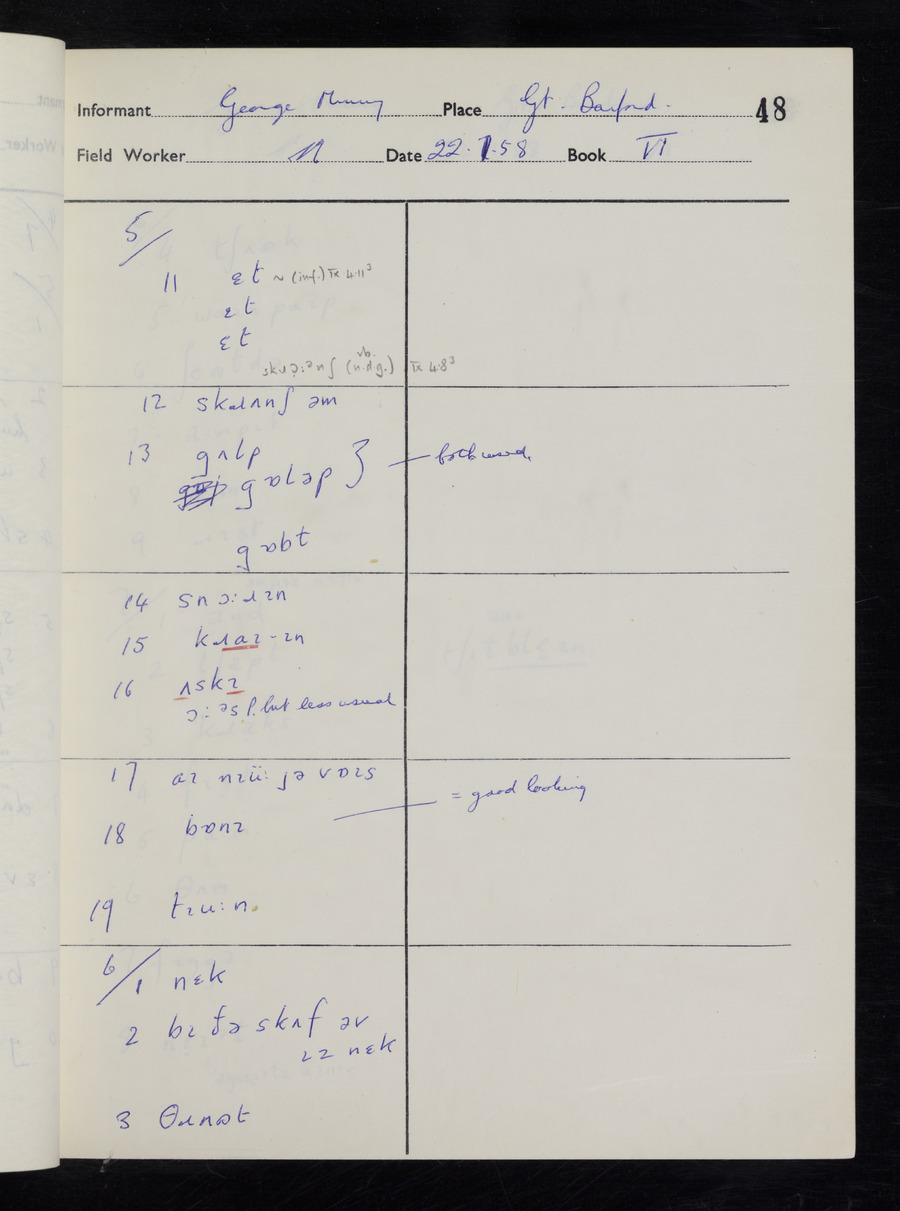 Informant George Place Gt. Barford. 48
Field Worker N Date 22.1.58 Book VI
5/
11 ɛt ~ (inf.) IX 4.11³
ɛt
ɛt
vb.
(n.d.g.) IX 4.8³
12 skɹʌnʃ əm
13 gʌlp } both used
gɒləp
gɒbt
14 snɔ:ɹɪn
15 kɹaɪ-ɪn
16 ʌskɪ
ɔ:əs p. but less usual
17 aɪ nɪü: jə vɒɪs
18 bɒnɪ = good looking
19 tɪu:n
6/1 nɛk
2 bɪ ðə skʌf əv
ɪz nɛk
3 θɹɒət